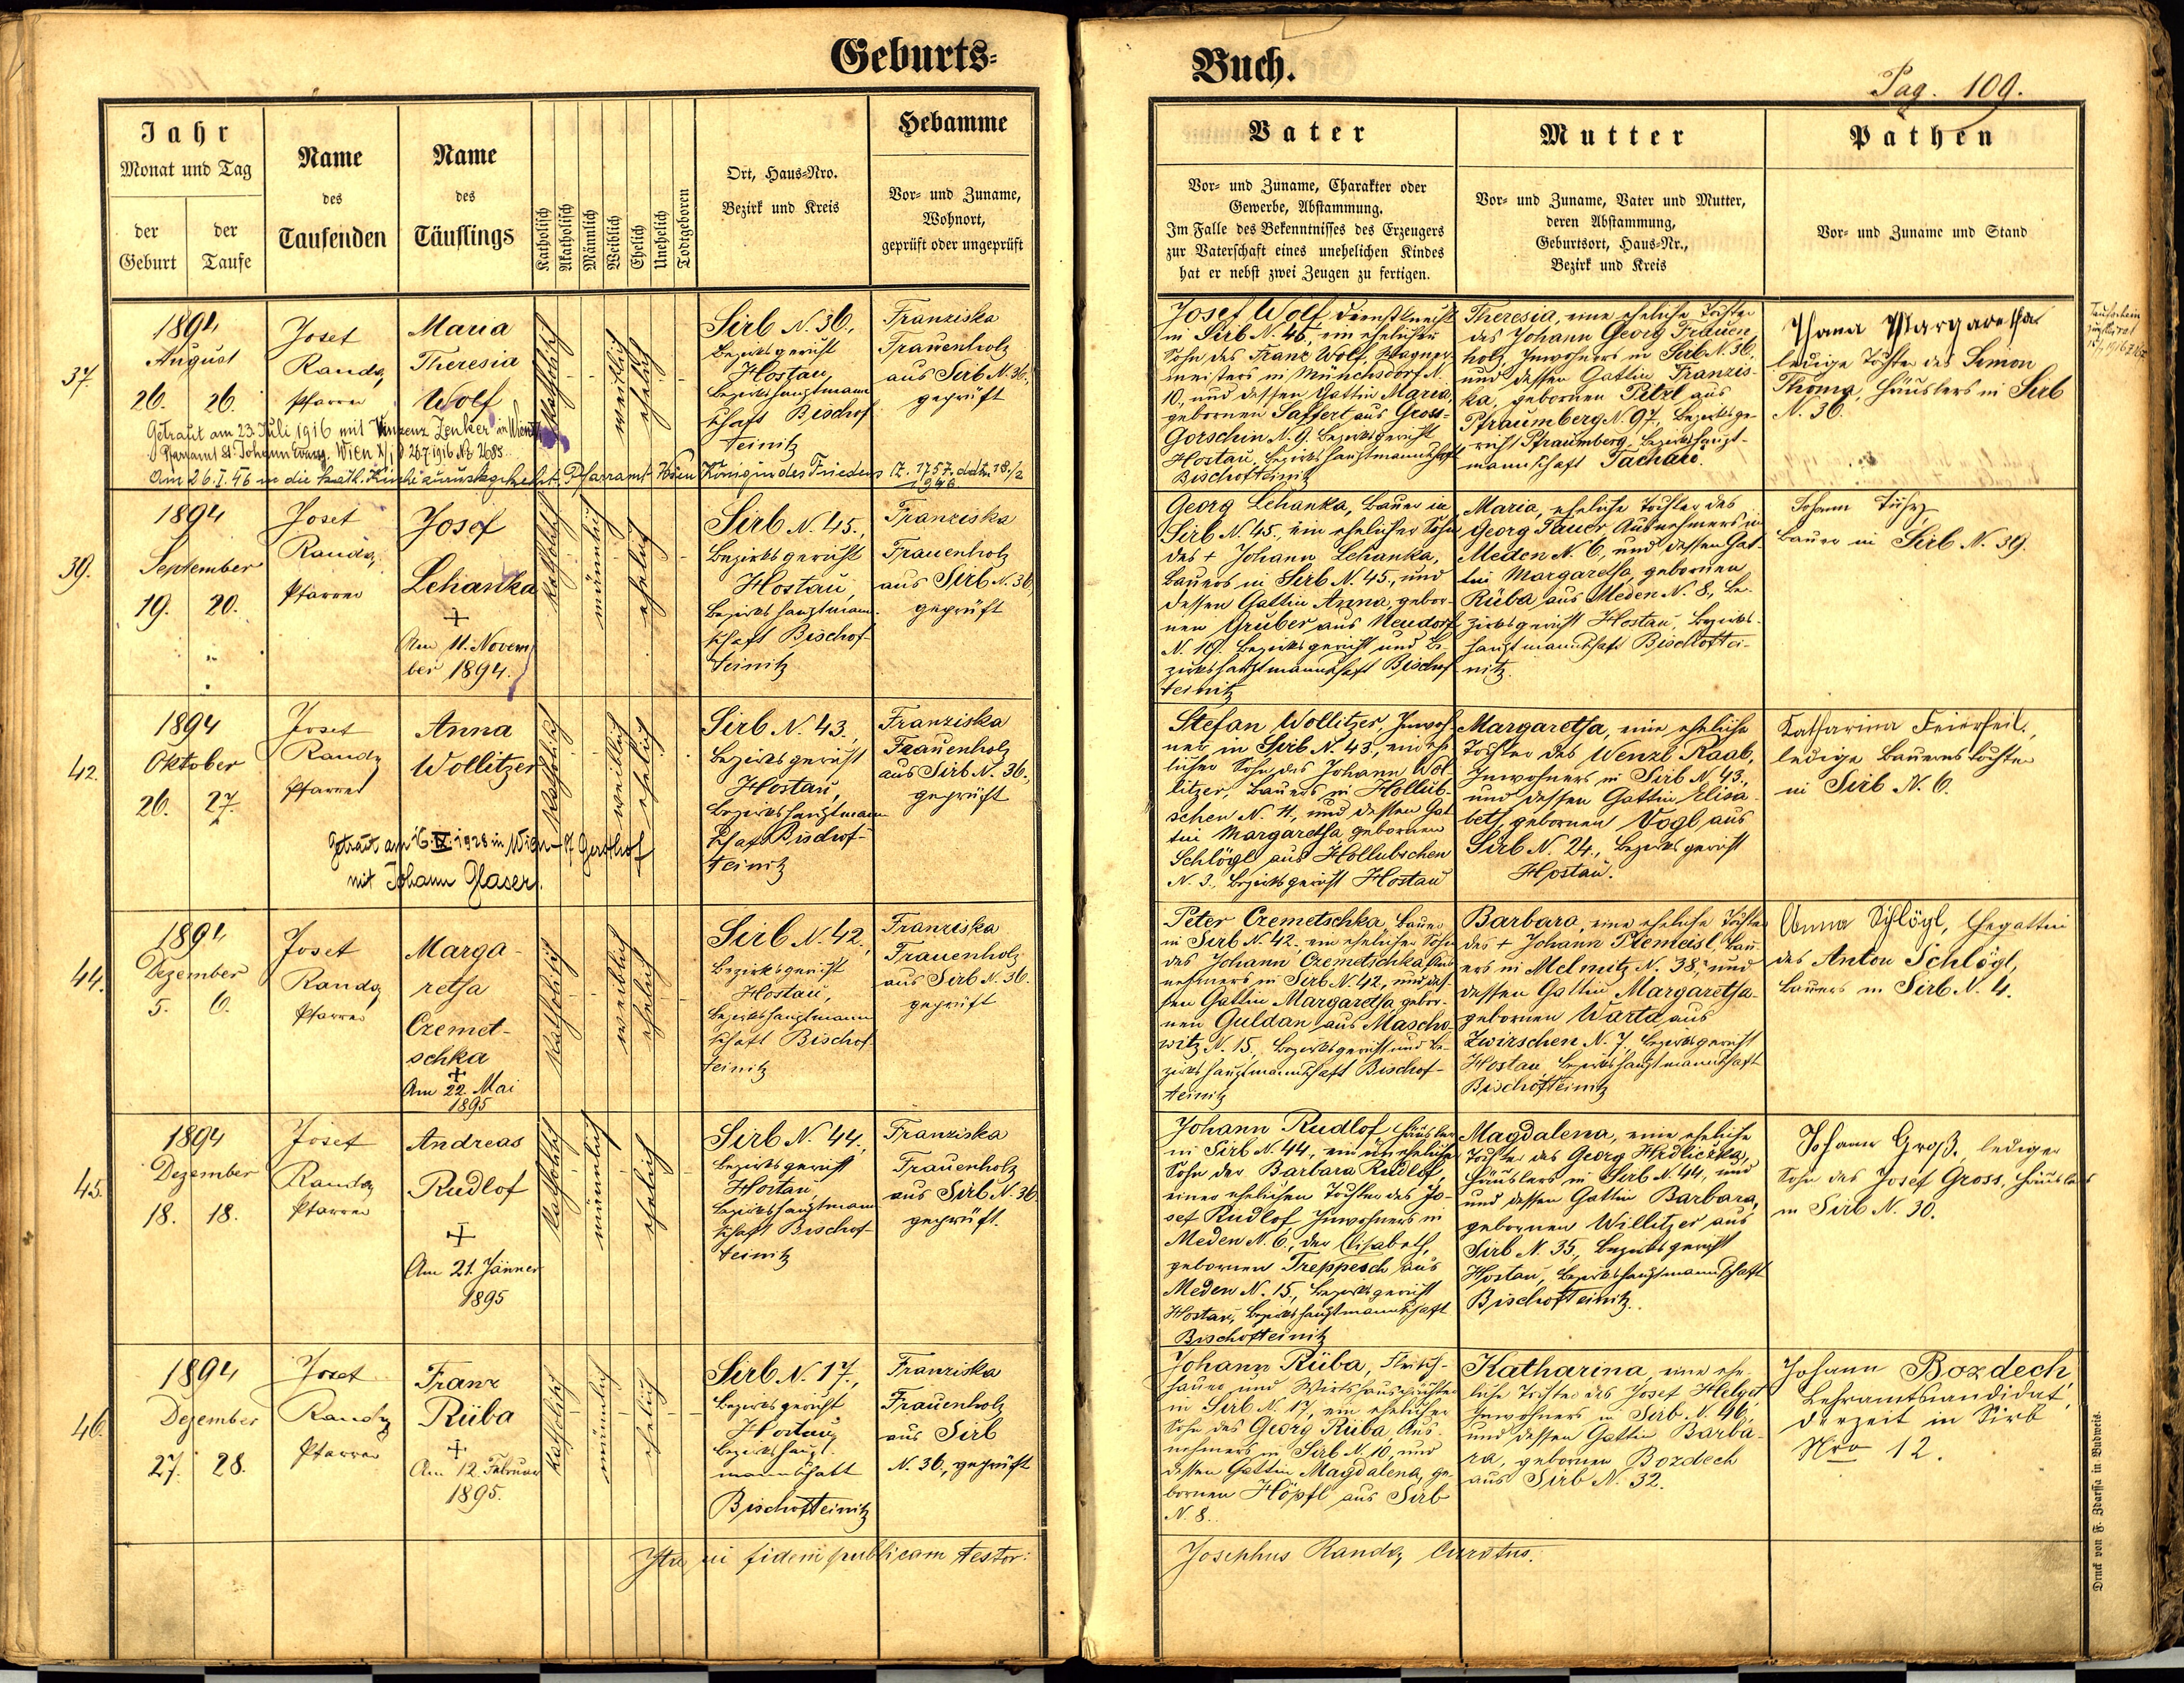 Geburts-
Buch.
Pag. 109.
Jahr
Monat und Tag
der
Geburt
der
Taufe
Name
des
Taufenden
Name
des
Täuflings
Katholisch
Akatholisch
Männlich
Weiblich
Ehelich
Unehelich
Todtgeboren
Ort, Haus-Nro.
Bezirk und Kreis
Hebamme
Vor- und Zuname,
Wohnort,
geprüft oder ungeprüft
Vater
Vor- und Zuname, Charakter oder
Gewerbe, Abstammung.
Im Falle des Bekenntnisses des Erzeugers
zur Vaterschaft eines unehelichen Kindes
hat er nebst zwei Zeugen zu fertigen.
Mutter
Vor- und Zuname, Vater und Mutter,
deren Abstammung,
Geburtsort, Haus-Nr.,
Bezirk und Kreis
Pathen
Vor- und Zuname und Stand
37.
1894
August
26. 26.
Josef
Randa,
Pfarrer
Maria
Theresia
Wolf
katholisch
weiblich
ehelich
Sirb N. 36,
Bezirksgericht
Hostau,
Bezirkshauptmann
schaft Bischof
teinitz
Franziska
Frauenholz
aus Sirb N. 36.,
geprüft
Getraut am 23. Juli 1916 mit Vinzenz Zenker in Wien
Pfarramt St. Johann Evang. Wien X/1 26.7.1916 No 2685.
Am 26.I.46 in die kath. Kirche zurückgekehrt. Pfarramt Wien Königin des Friedens Z. 1757
Josef Wolf Dienstknecht
in Sirb N. 45, ein ehelicher
Sohn des Franz Wolf, Wagner-
meisters in Münchsdorf N.
10, und dessen Gattin Maria,
gebornen Saffert aus Gross-
Gorschin N. 9. Bezirksgericht
Hostau, Bezirkshauptmannschaft
Bischofteinitz
Theresia, eine eheliche Tochter
des Johann Georg Frauen
holz, Inwohners in Sirb N. 36,
und dessen Gattin Franzis-
ka, gebornen Pitzl aus
Pfraumberg N. 97, Bezirksge-
richt Pfraumberg, Bezirkshaupt-
mannschaft Tachau.
Margaretha
ledige Tochter des Simon
Thoma, Häuslers in Sirb
N. 36.
Taufschein
39.
1894
September
19. 20.
Josef
Randa,
Pfarrer
Josef
Lehanka
+
Am 11. Novem
ber 1894.
katholisch
männlich
ehelich
Sirb N. 45.,
Bezirksgericht
Hostau,
Bezirkshauptmann-
schaft Bischof-
teinitz
Franziska
Frauenholz
aus Sirb N. 36
geprüft
Georg Lehanka, Bauer in
Sirb N. 45., ein ehelicher Sohn
des + Johann Lehanka,
Bauers in Sirb N. 45., und
dessen Gattin Anna, gebor-
nen Gruber aus Neudorf
N. 19. Bezirksgericht und Be-
zirkshauptmannschaft Bischof
teinitz
Maria, eheliche Tochter des
Georg Pauer Ausnehmers in
Meden N. 6, und dessen Gat-
tin Margaretha, gebornen
Rüba aus Meden N. 8, Be-
zirksgericht Hostau, Bezirks-
hauptmannschaft Bischoftei-
nitz.
Johann
Bauer in Sirb N. 39.
42.
1894
Oktober
26. 27.
Josef
Randa,
Pfarrer
Anna
Wollitzer
katholisch
weiblich
ehelich
Sirb N. 43.,
Bezirksgericht
Hostau,
Bezirkshauptmann
schaft Bischof-
teinitz
Franziska
Frauenholz
aus Sirb N. 36.,
geprüft
Getraut am 16.IX.1928 in Wien-17 Gersthof
mit Johann Glaser.
Stefan Wollitzer, Inwoh
ner in Sirb N. 43, ein ehe
licher Sohn des Johann Wol-
litzer, Bauers in Hollub-
schen N. 4, und dessen Gat
tin Margaretha gebornen
Schlögl aus Hollubschen
N. 3., Bezirksgericht Hostau
Margaretha, eine eheliche
Tochter des Wenzl Raab,
Inwohners in Sirb N. 43,
und dessen Gattin Elisa-
beth, gebornen Vogl aus
Sirb N. 24., Bezirksgericht
Hostau.
Katharina Feierfeil,
ledige Bauerstochter
in Sirb N. 6.
44.
1894
Dezember
5. 6.
Josef
Randa,
Pfarrer
Marga-
retha
Czemet-
schka
+
Am 22. Mai
1895
katholisch
weiblich
ehelich
Sirb N. 42.,
Bezirksgericht
Hostau,
Bezirkshauptmann
schaft Bischof-
teinitz
Franziska
Frauenholz
aus Sirb N. 36.
geprüft
Peter Czemetschka, Bauer
in Sirb N. 42., ein ehelicher Sohn
des Johann Czemetschka, Aus
nehmers in Sirb N. 42, und des-
sen Gattin Margaretha gebor-
nen Guldan aus Mascho-
witz N. 15., Bezirksgericht und Be-
zirkshauptmannschaft Bischof-
teinitz
Barbara, eine eheliche Tochter
des + Johann Plemeisl, Bau
ers in Melmitz N. 38, und
dessen Gattin Margaretha
gebornen Warta aus
Zwirschen N. 7, Bezirksgericht
Hostau, Bezirkshauptmannschaft
Bischofteinitz
Anna Schlögl, Ehegattin
des Anton Schlögl,
Bauers in Sirb N. 4.
45.
1894
Dezember
18. 18.
Josef
Randa,
Pfarrer
Andreas
Rudlof
+
Am 21. Jänner
1895
katholisch
männlich
ehelich
Sirb N. 44.,
Bezirksgericht
Hostau,
Bezirkshauptmann
schaft Bischof-
teinitz
Franziska
Frauenholz
aus Sirb N. 36
geprüft.
Johann Rudlof Häusler
in Sirb N. 44, ein unehelicher
Sohn der Barbara Rudlof,
einer ehelichen Tochter des Jo-
sef Rudlof Inwohners in
Meden N. 6., der Elisabeth,
gebornen Treppesch aus
Meden N. 15., Bezirksgericht
Hostau, Bezirkshauptmannschaft
Bischofteinitz
Magdalena, eine eheliche
Tochter des Georg Hrdliczka,
Häuslers in Sirb N. 44, und
und dessen Gattin Barbara,
gebornen Willitzer aus
Sirb N. 35., Bezirksgericht
Hostau, Bezirkshauptmannschaft
Bischofteinitz.
Johann Groß, lediger
Sohn des Josef Gross, Häuslers
in Sirb N. 30.
46.
1894
Dezember
27. 28.
Josef
Randa,
Pfarrer
Franz
Rüba
+
Am 12. Februar
1895.
katholisch
männlich
ehelich
Sirb N. 17.,
Bezirksgericht
Hostau,
Bezirkshaupt-
mannschaft
Bischofteinitz
Franziska
Frauenholz
aus Sirb
N. 36, geprüft
Johann Rüba, Fleisch-
hauer und Wirtshauspächter
in Sirb N. 17, ein ehelicher
Sohn des Georg Rüba, Aus-
nehmers in Sirb N. 10, und
dessen Gattin Magdalena, ge-
bornen Höpfl aus Sirb
N. 8.
Katharina, eine ehe-
liche Tochter des Josef Helget
Inwohners in Sirb N. 46,
und dessen Gattin Barba-
ra, gebornen Bozdech
aus Sirb N. 32.
Johann Bozdech,
Lehramtskandidat,
derzeit in Sirb
Nro 12.
Ita in fidem publicam testor:
Josephus Randa, Curatus.
Druck von F. Zdarssa in Budweis.